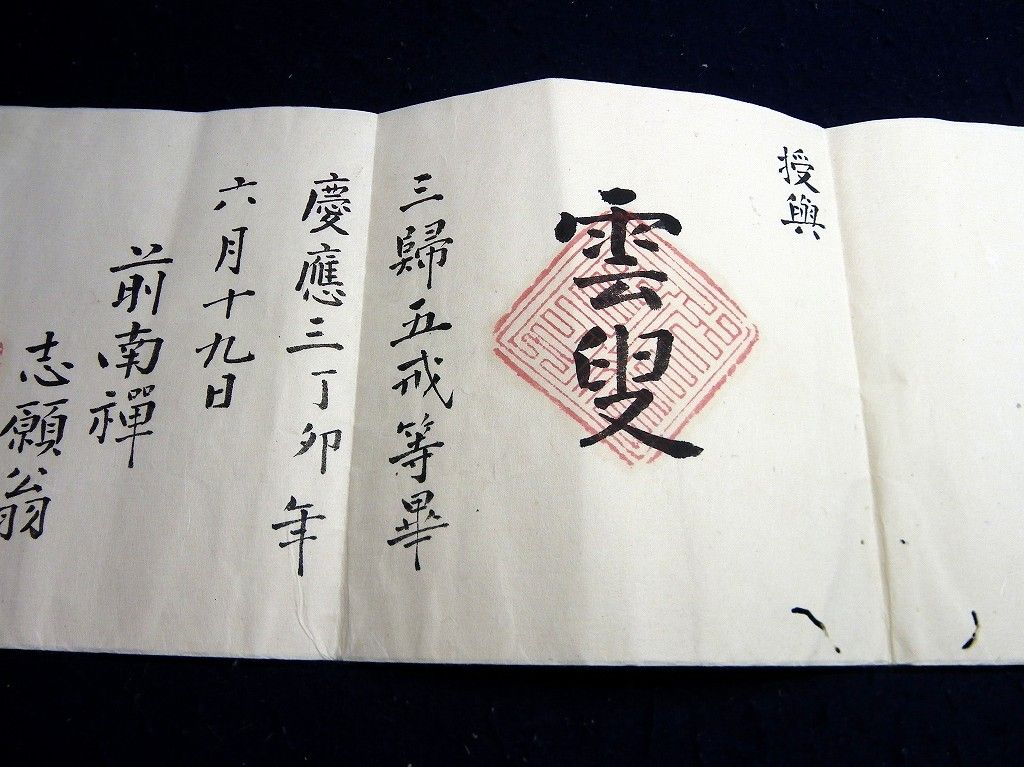 授與
雲叟
三歸五戒等畢
慶應三丁卯年
六月十九日
前南禪
志願翁